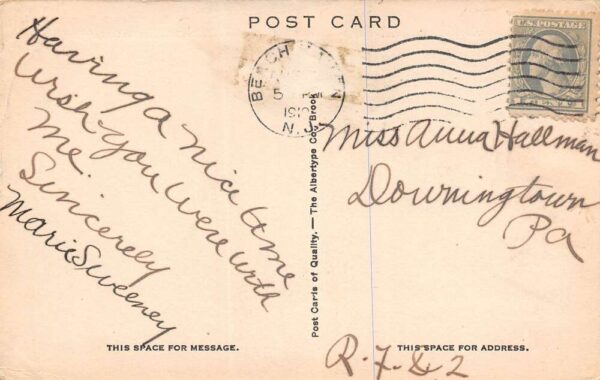 POST CARD
Having a nice time
Wish you were with
me.
Sincerely
Marie Sweeney
THIS SPACE FOR MESSAGE.
Post Cards of Quality. — The Albertype Co., Brook
BEACH
5 PM
N.J.
U.S. POSTAGE
1 CENT 1
Miss Anna Hallman
Downingtown
Pa
THIS SPACE FOR ADDRESS.
R.F.D. 2